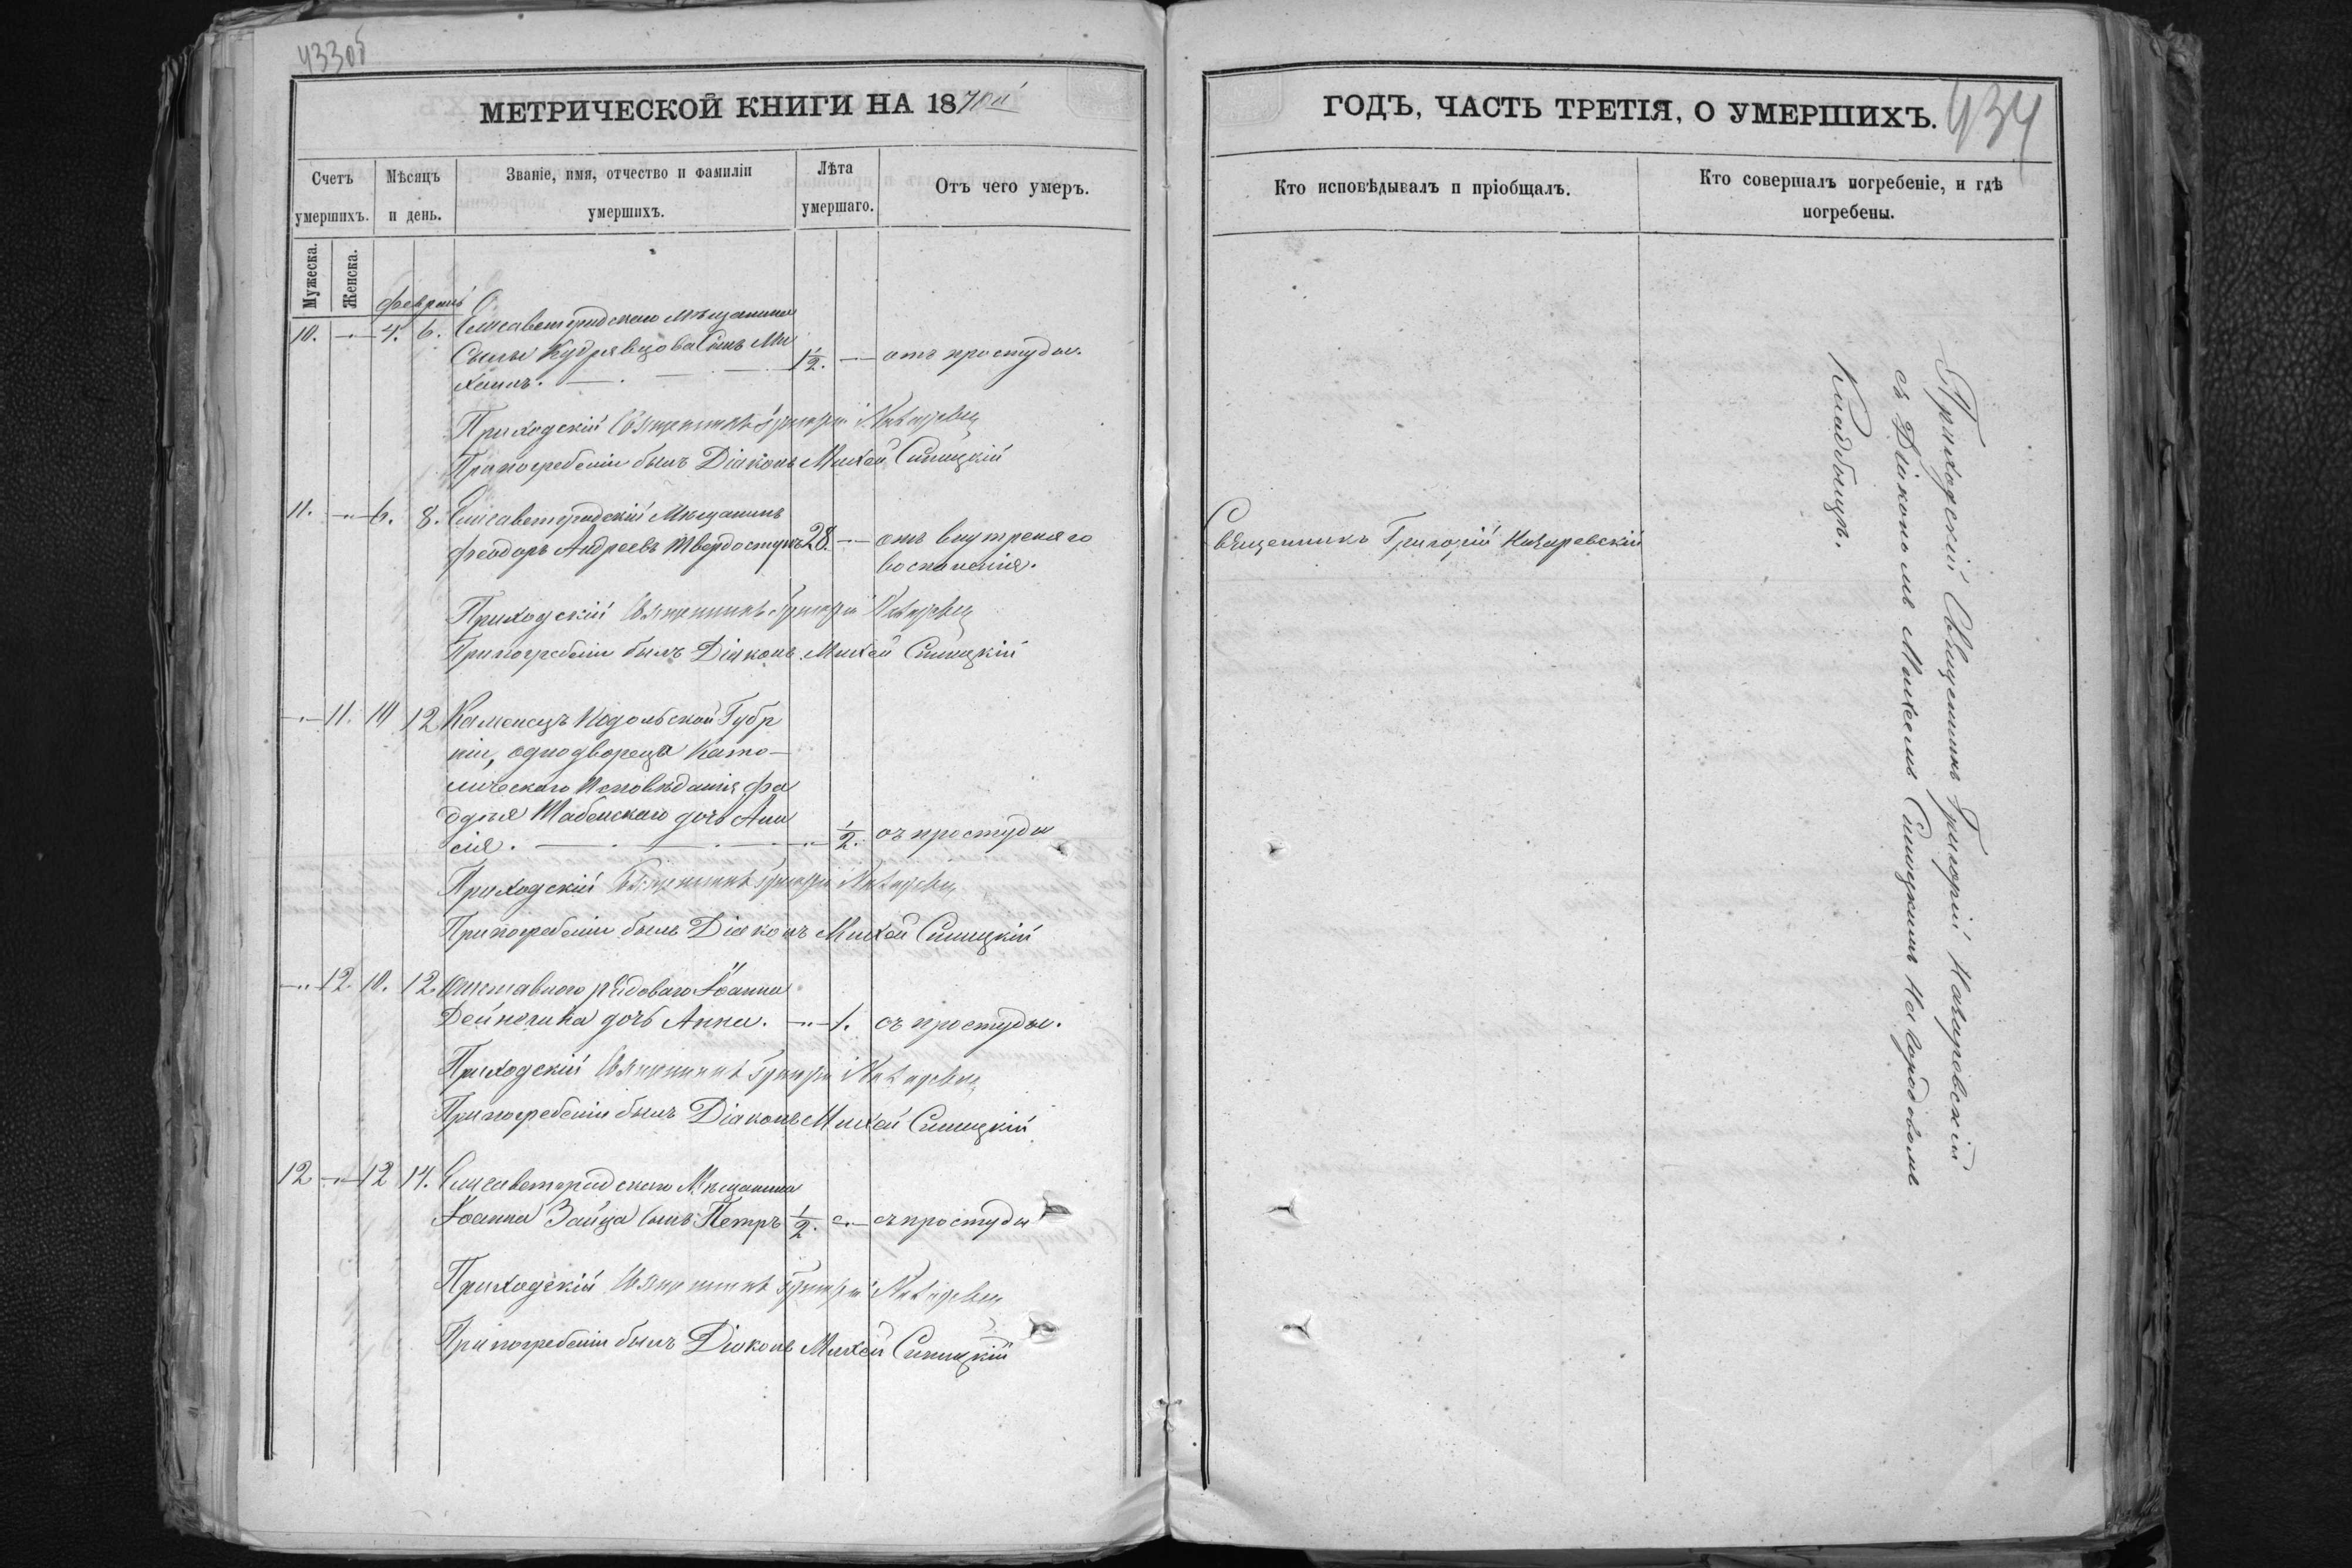 433об
МЕТРИЧЕСКОЙ КНИГИ НА 1870й
Счетъ умершихъ.
Мѣсяцъ и день.
Званіе, имя, отчество и фамиліи умершихъ.
Лѣта умершаго.
Отъ чего умеръ.
Мужеска.
Женска.
Февраль
10. —"— 4. 6. Елисаветградскаго мѣщанина
Сылы Кудрявцова Сынъ Ми
хаилъ. 1½. — отъ простуды.
Приходскій Священникъ Григорій
При погребеніи былъ Діаконъ Михей Синицкій
11. —"— 6. 8. Елисаветградскій Мѣщанинъ
Феодоръ Андреевъ 28. — отъ внутреняго
воспаленія.
Приходскій Священникъ Григорій
При погребеніи былъ Діаконъ Михей Синицкій
—"— 11. 10 12 Каменецъ Подольской Губер
ніи, однодвореца Като-
лическаго Исповѣданія Фа
дѣя дочь Ани
сія. —"— ½. отъ простуды
Приходскій Священникъ Григорій
При погребеніи былъ Діаконъ Михей Синицкій
—"— 12. 10. 12. рядоваго Іоанна
Дейнечина дочь Анна. —"— 1. отъ простуды.
Приходскій Священникъ Григорій
При погребеніи былъ Діаконъ Михей Синицкій
12 —"— 12 14. Елисаветградскаго Мѣщанина
Іоанна Зайца сынъ Петръ ½. —"— отъ простуды
Приходскій Священникъ Григорій
При погребеніи былъ Діаконъ Михей Синицкій
ГОДЪ, ЧАСТЬ ТРЕТІЯ, О УМЕРШИХЪ.
434
Кто исповѣдывалъ и пріобщалъ.
Кто совершалъ погребеніе, и гдѣ погребены.
Священникъ Григорій Назаревскій
Приходскій Священникъ Григорій Назаревскій
съ Діякономъ Михеемъ Синицкимъ на городовомъ
Кладбищѣ.